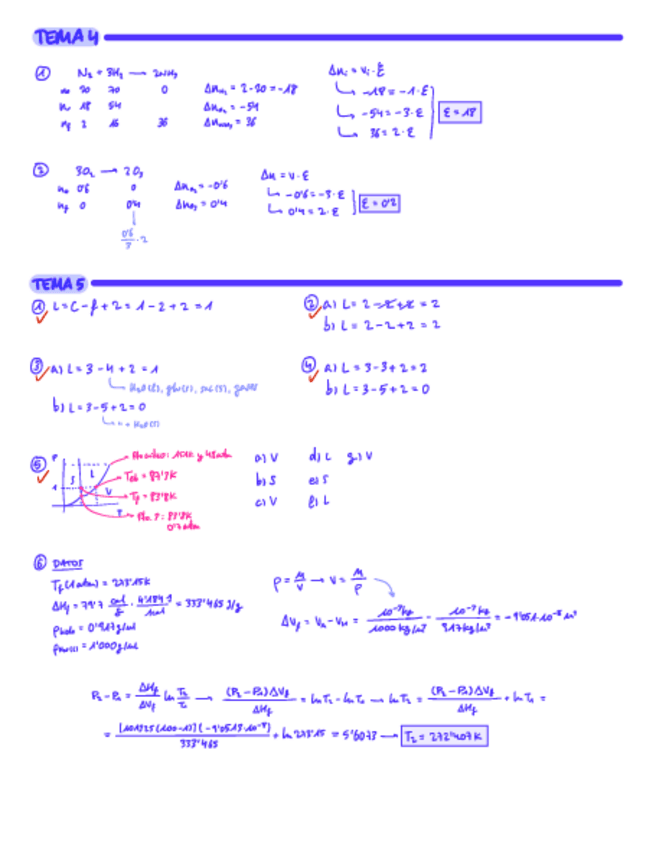 TEMA 4
① N₂ + 3H₂ → 2NH₃
n₀ 20 70 0
n 18 54
n_f 2 16 36
Δn_N₂ = 2-20 = -18
Δn_H₂ = -54
Δn_NH₃ = 36
Δn_i = ν_i · ξ
-18 = -1 · ξ
-54 = -3 · ξ
36 = 2 · ξ
ξ = 18
② 3O₂ → 2O₃
n₀ 0'6 0
n_f 0 0'4
0'6/3 · 2
Δn_O₂ = -0'6
Δn_O₃ = 0'4
Δn = ν · ξ
-0'6 = -3 · ξ
0'4 = 2 · ξ
ξ = 0'2
TEMA 5
① L = C - f + 2 = 1 - 2 + 2 = 1
② a) L = 2 - 2 + 2 = 2
b) L = 2 - 2 + 2 = 2
③ a) L = 3 - 4 + 2 = 1
H₂O(l), glu(s), sac(s), gases
b) L = 3 - 5 + 2 = 0
+ H₂O(s)
④ a) L = 3 - 3 + 2 = 2
b) L = 3 - 5 + 2 = 0
⑤ P
1
S L V
T
T_eb = 87'3K
T_f = 83'8K
Pto. T: 83'8K
0'7 atm
a) V d) L g) V
b) S e) S
c) V f) L
⑥ DATOS
T_f (1 atm) = 273'15K
ΔH_f = 79'7 cal/g · 4'184 J/1 cal = 333'465 J/g
ρ_hielo = 0'917 g/ml
= 1'000 g/ml
ρ= M/V → V = M/ρ
ΔV_f = 10⁻³ kg/1000 kg/m³ - 10⁻³ kg/917 kg/m³ = -9'051·10⁻⁸ m³
P₂ - P₁ = ΔH_f/ΔV_f ln T₂/T₁ → (P₂-P₁)ΔV_f/ΔH_f = ln T₂ - ln T₁ → ln T₂ = (P₂-P₁)ΔV_f/ΔH_f + ln T₁ =
= [101325(100-1)](-9'0513·10⁻⁸)/333'465 + ln 273'15 = 5'6073 → T₂ = 272'407 K